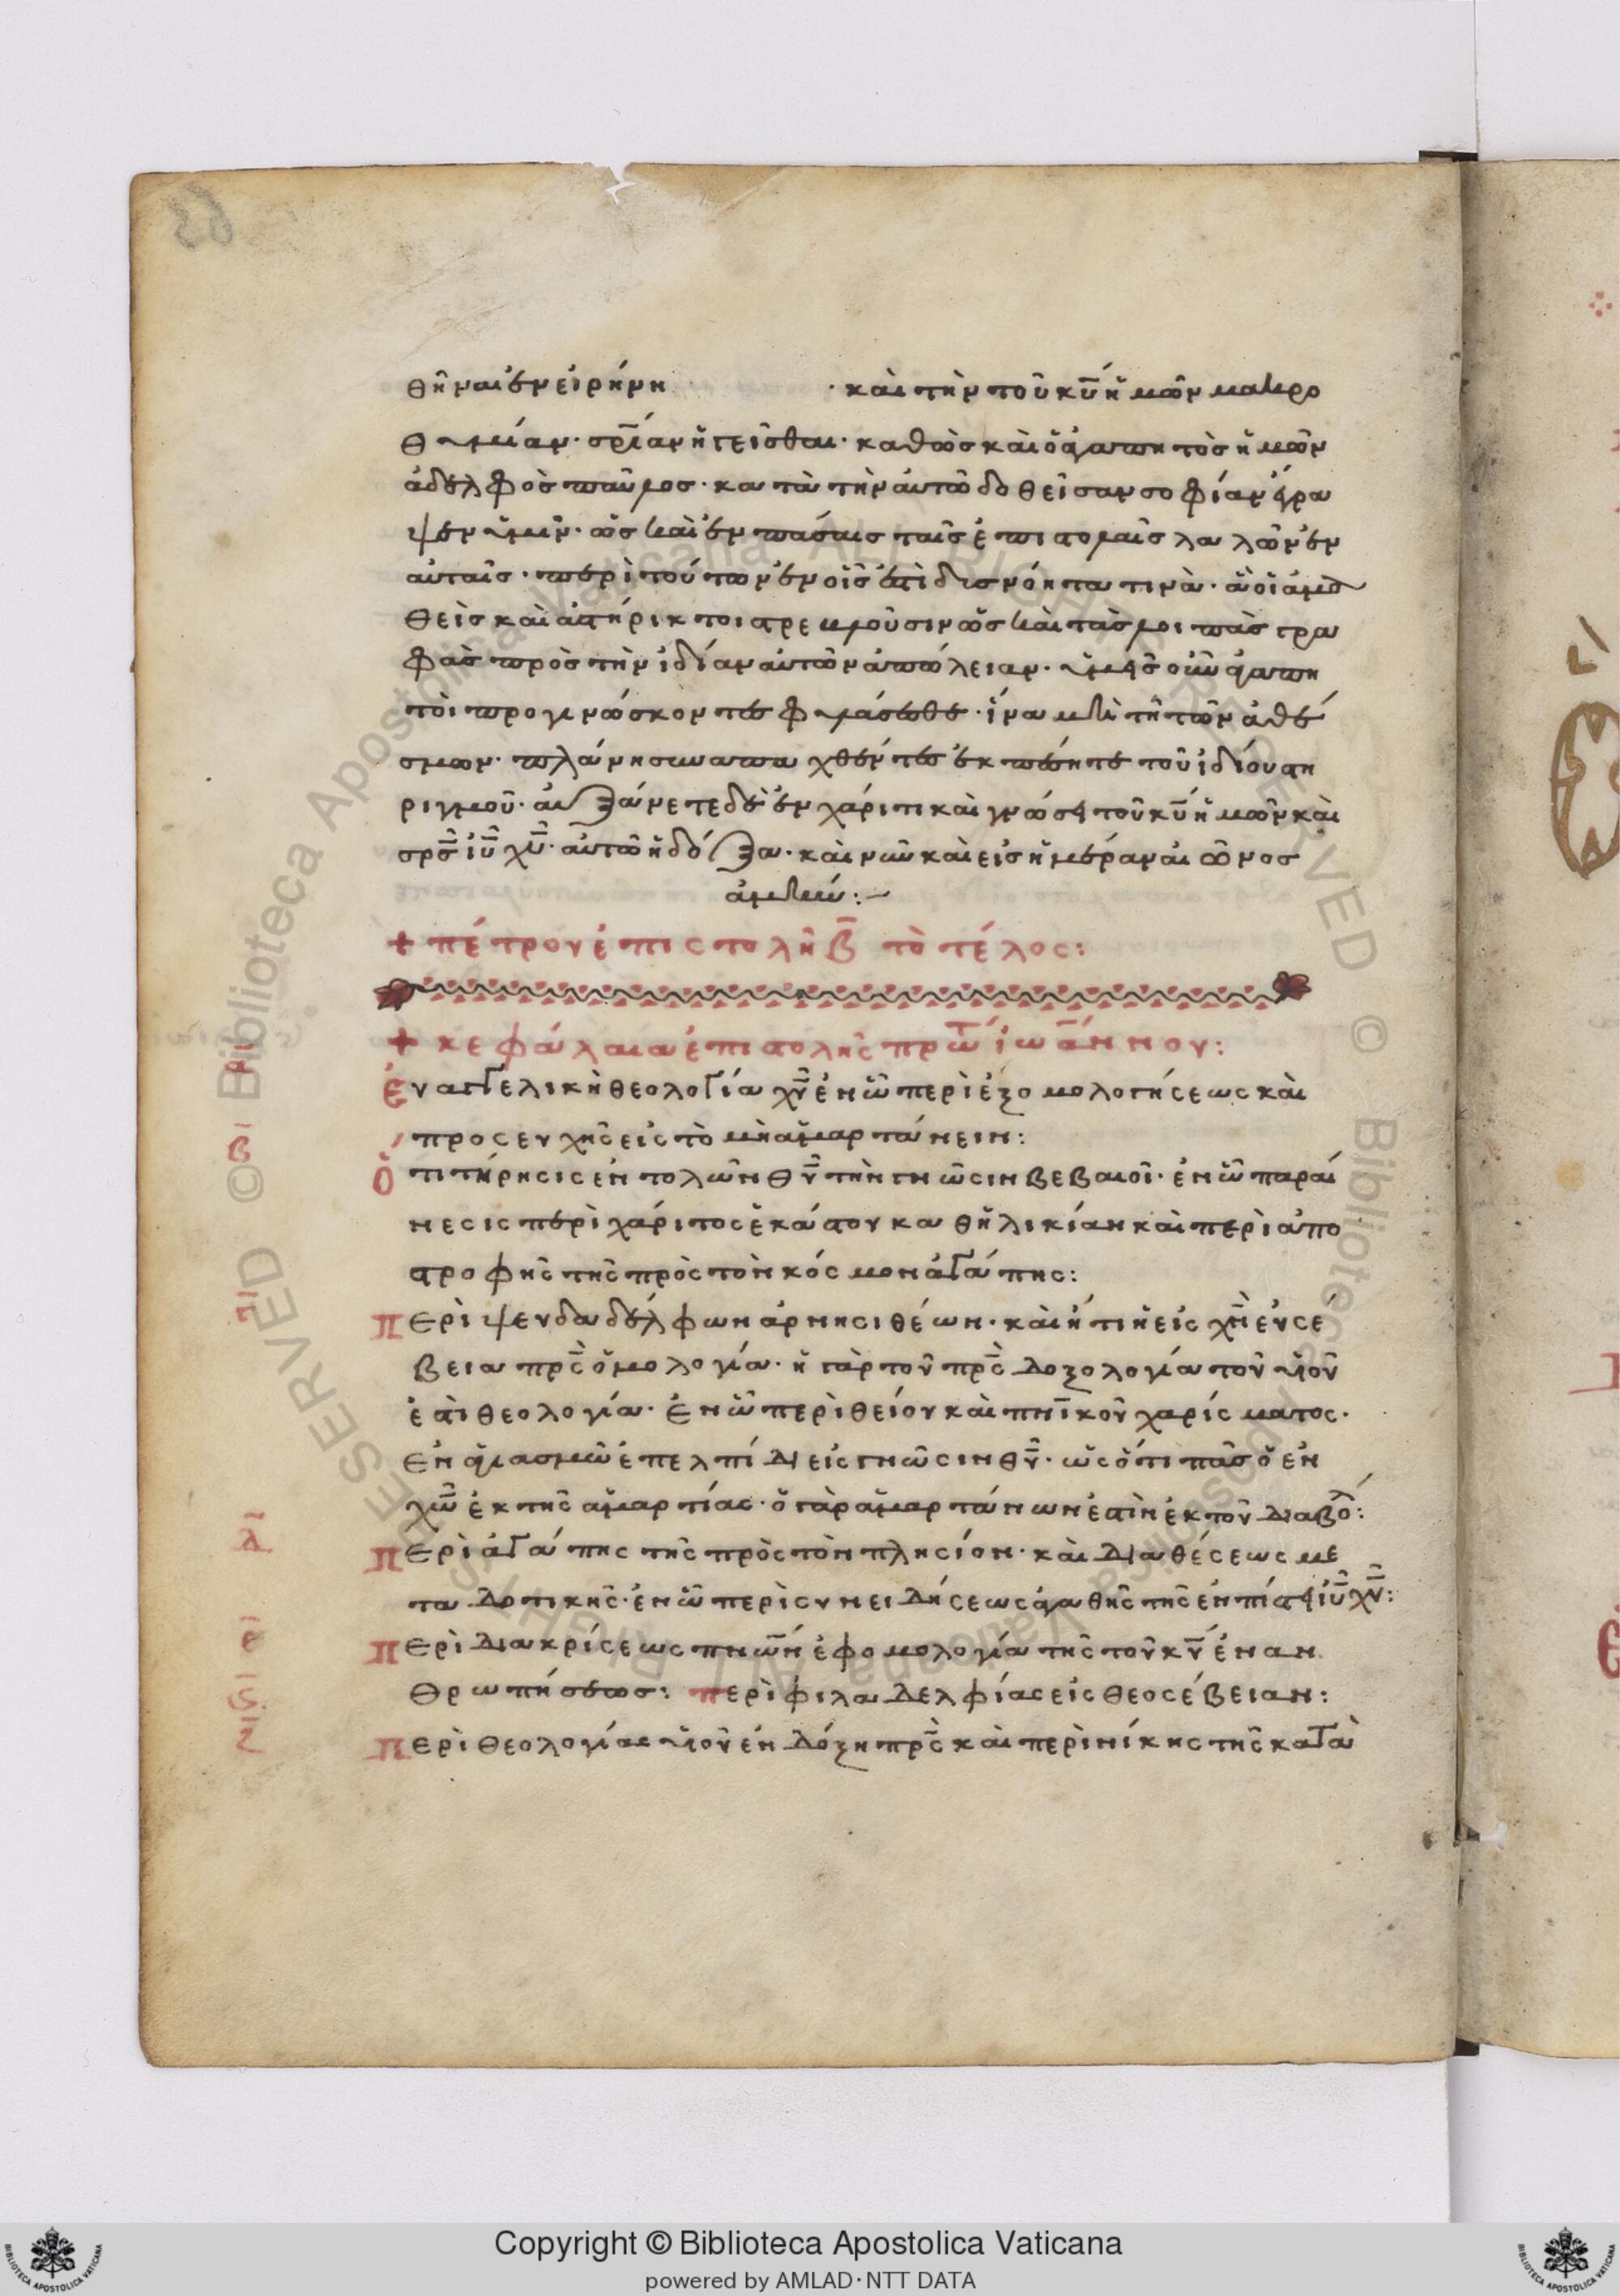 θῆναι ἐν εἰρήνη · καὶ τὴν τοῦ κ̅υ̅ ἡμῶν μακρο
θυμίαν · σρ̅ίαν ἡγεῖσθαι · καθὼς καὶ ὁ ἀγαπητὸς ἡμῶν
ἀδελφὸς παῦλος · κατὰ τὴν αὐτῶ δοθεῖσαν σοφίαν ἔγρα
ψεν ὑμῖν · ὡς καὶ ἐν πάσαις ταῖς ἐπιστολαῖς λαλῶν ἐν
αὐταῖς · περὶ τούτων ἐν οἷς ἐστὶ δυσνόητα τινὰ · ἃ οἱ ἀμα
θεῖς καὶ ἀστήρικτοι στρεβλοῦσιν ὡς καὶ τὰς λοιπὰς γρα
φὰς πρὸς τὴν ἰδίαν αὐτῶν ἀπώλειαν · ὑμεῖς οὖν ἀγαπη
τοὶ προγινώσκοντες φυλάσεσθε · ἵνα μὴ τῆ τῶν ἀθέ
σμων · πλάνη συναπαχθέντες ἐκπέσητε τοῦ ἰδίου στη
ριγμοῦ · αὐξάνετε δὲ ἐν χάριτι καὶ γνώσει τοῦ κ̅υ̅ ἡμῶν καὶ
σρ̅ς̅ ἰ̅υ̅ χ̅υ̅ · αὐτῶ ἡ δόξα · καὶ νῦν καὶ εἰς ἡμέραν αἰῶνος
ἀμήν :
+ πέτρου ἐπιστολῆ β̅ τὸ τέλος :
+ κεφάλαια ἐπιστολῆς πρώτ ἰωάννου :
α̅ ἐυαγγελικὴ θεολογία χ̅υ̅ ἐν ὧ περὶ ἐξομολογήσεως καὶ
προσευχῆς εἰς τὸ μὴ ἁμαρτάνειν :
β̅ ὅτι τήρησις ἐντολῶν θ̅υ̅ τὴν γνῶσιν βεβαιοῖ · ἐν ὧ παραί
νεσις περὶ χάριτος ἑκάστου καθ ἡλικίαν καὶ περὶ ἀπο
στροφῆς τῆς πρὸς τὸν κόσμον ἀγάπης :
γ̅ περὶ ψευδαδέλφων ἀρνησιθέων · καὶ ὅτι ἡ εἰς χ̅ν̅ ἐυσέ
βεια πρ̅ς̅ ὁμολογία · ἡ γὰρ τοῦ πρ̅ς̅ δοξολογία τοῦ υἱοῦ
ἐστὶ θεολογία · ἐν ὧ περὶ θείου καὶ πν̅ικοῦ χαρίσματος ·
ἐν ἁγιασμῶ ἐπελπίδι εἰς γνῶσιν θ̅υ̅ · ὡς ὅτι πᾶς ὁ ἐν
χ̅ω̅ ἐκτὸς ἁμαρτίας · ὁ γὰρ ἁμαρτάνων ἐστὶν ἐκ τοῦ διαβόλ :
δ̅ περὶ ἀγάπης τῆς πρὸς τὸν πλησίον · καὶ διαθέσεως με
ταδοτικῆς · ἐν ὧ περὶ συνειδήσεως ἀγαθῆς τῆς ἐν πίστει ἰ̅υ̅ χ̅υ̅ :
ε̅ περὶ διακρίσεως πν̅ων ἐφομολογία τῆς τοῦ κ̅υ̅ ἐναν
ς̅ θρωπήσεως : περὶ φιλαδελφίας εἰς θεοσέβειαν :
ζ̅ περὶ θεολογίας υἱοῦ ἐν δόξη πρ̅ς̅ καὶ περὶ νίκης τῆς κατὰ
Copyright © Biblioteca Apostolica Vaticana
powered by AMLAD·NTT DATA